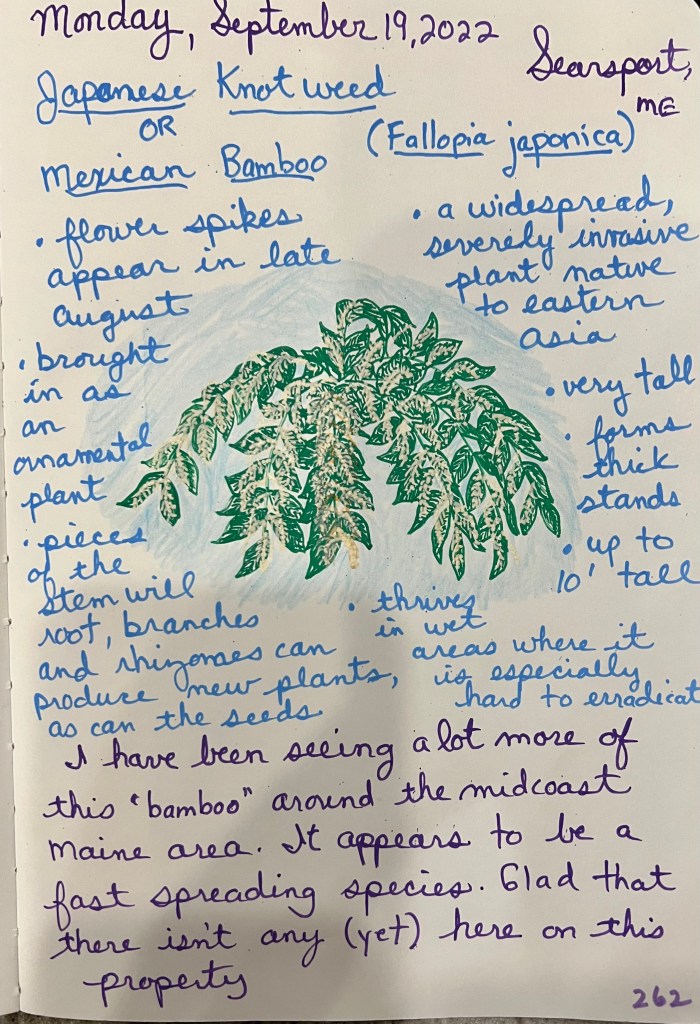 Monday, September 19, 2022
Searsport,
ME
Japanese Knotweed
OR
Mexican Bamboo
(Fallopia japonica)
• flower spikes
appear in late
august
• brought
in as
an
ornamental
plant
• pieces
of the
stem will
root, branches
and rhizomes can
produce new plants,
as can the seeds
• a widespread,
severely invasive
plant native
to eastern
asia
• very tall
• forms
thick
stands
• up to
10' tall
• thrives
in wet
areas where it
is especially
hard to erradicat
I have been seeing a lot more of
this "bamboo" around the midcoast
Maine area. It appears to be a
fast spreading species. Glad that
there isn't any (yet) here on this
property
262